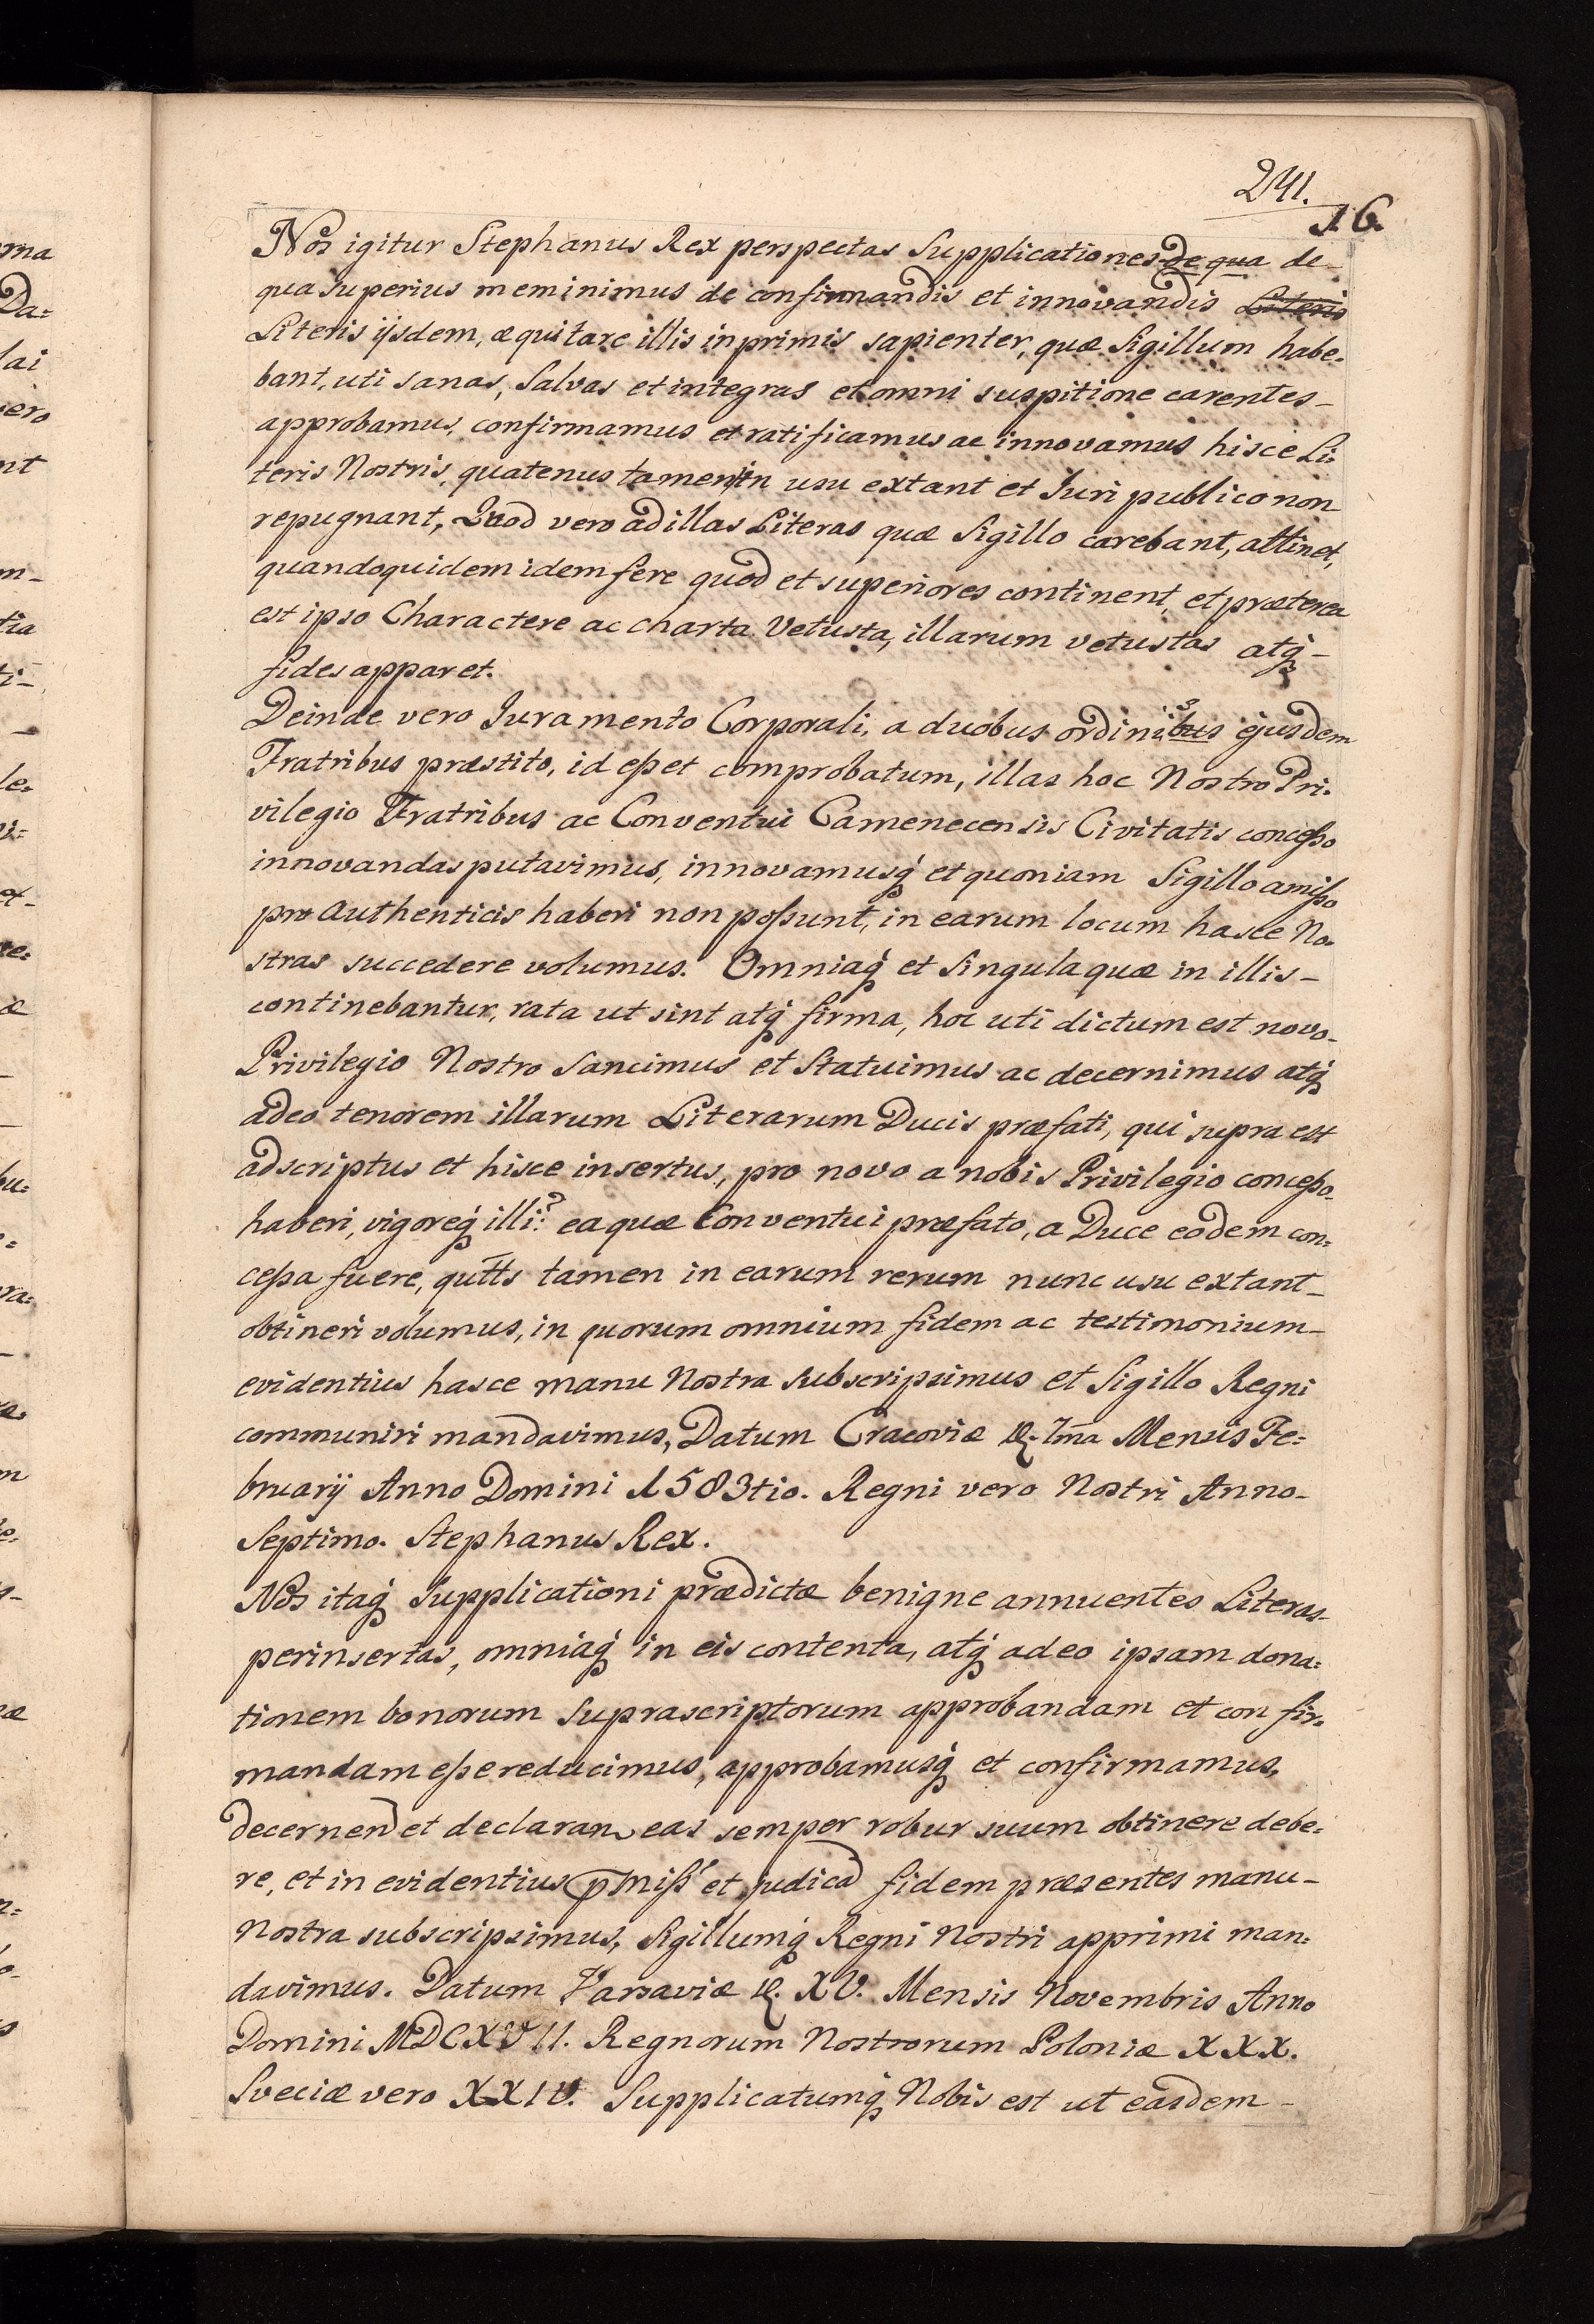 241.
16.
Nos igitur Stephanus Rex perspectas Supplicationes de qua de-
qua superius meminimus de confirmandis et innovandis Literis
Literis ijsdem, æquitare illis inprimis sapienter, quæ Sigillum habe-
bant, uti sanas, Salvas et integras et omni suspitione carentes-
approbamus, confirmamus et ratificamus ac innovamus hisce Li-
teris Nostris, quatenus tamen in usu extant et Juri publico non
repugnant, Quod vero ad illas Literas quæ Sigillo carebant, attinet,
quandoquidem idem fere quod et superiores continent, et præterea
est ipso Charactere ac charta Vetusta, illarum vetustas atq́-
fides apparet.
Deinde vero Juramento Corporali, a duobus ordinibus ejusdem
Fratribus præstito, id eßet comprobatum, illas hoc Nostro Pri-
vilegio Fratribus ac Conventui Camenecensis Civitatis conceßo
innovandas putavimus, innovamusq́ et quoniam Sigillo amißo
pro authenticis haberi non poßunt, in earum locum hasce No-
stras succedere volumus. Omniaq́ et Singula quæ in illis-
continebantur, rata ut sint atq́ firma, hoc uti dictum est novo-
Privilegio Nostro Sancimus et Statuimus ac decernimus atq́
adeo tenorem illarum Literarum Ducis præfati, qui supra est
adscriptus et hisce insertus, pro novo a nobis Privilegio conceßo-
haberi, vigoreq́ illi: ea quæ Conventui præfato, a Duce eodem con-
ceßa fuere, qutts tamen in earum rerum nunc usu extant-
obtineri volumus, in quorum omnium fidem ac testimonium-
evidentius hasce manu Nostra Subscripsimus et Sigillo Regni
communiri mandavimus, Datum Cracoviæ D. 7ma Mensis Fe-
bruarij Anno Domini 1583tio. Regni vero Nostri Anno-
Septimo. Stephanus Rex.
Nos itaq́ Supplicationi prædictæ benigne annuentes Literas-
perinsertas, omniaq́ in eis contenta, atq́ adeo ipsam dona-
tionem bonorum Suprascriptorum approbandam et con fir-
mandam eße reducimus, approbamusq́ et confirmamus,
decernend et declaran eas semper robur suum obtinere debe-
re, et in evidentius pmiß et judica fidem præsentes manu-
Nostra subscripsimus, Sigillumq́ Regni Nostri apprimi man-
davimus. Datum Varsaviæ D. XV. Mensis Novembris Anno
Domini MDCXVII. Regnorum Nostrorum Poloniæ XXX.
Sveciæ vero XXIV. Supplicatumq́ Nobis est ut easdem-